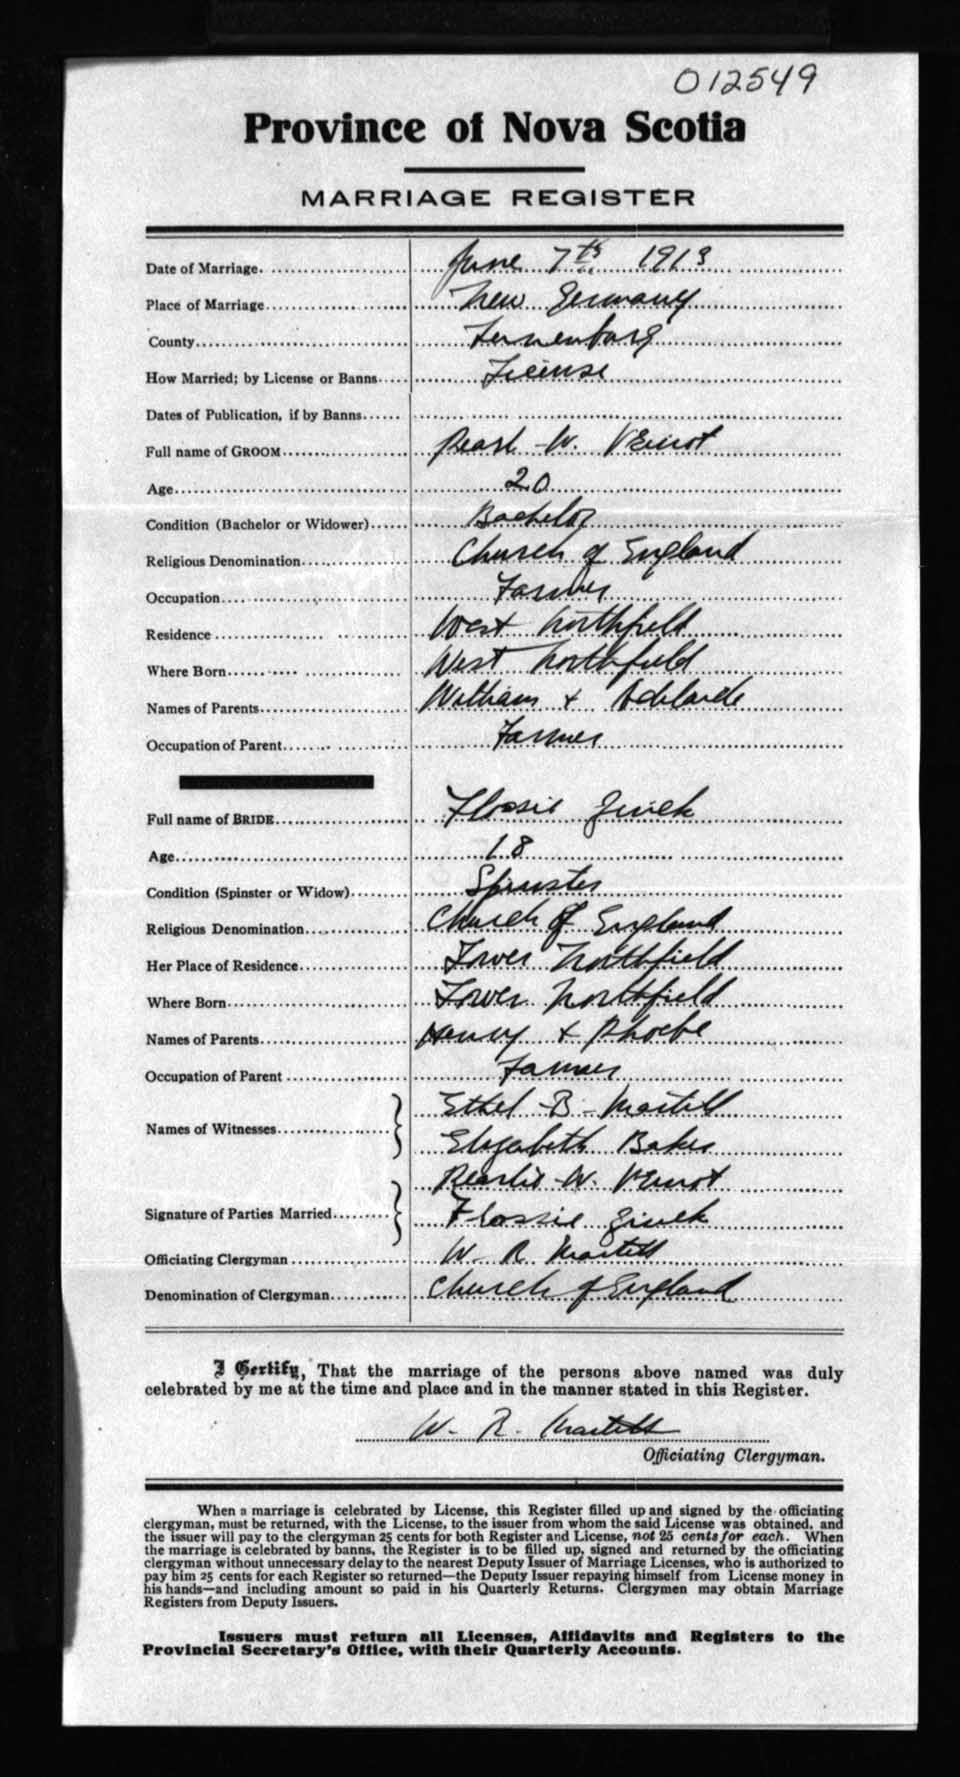 012549
Province of Nova Scotia
MARRIAGE REGISTER
Date of Marriage. June 7th 1913
Place of Marriage New Germany
County Lunenburg
How Married; by License or Banns License
Dates of Publication, if by Banns
Full name of GROOM Pearl W. Veinot
Age 20
Condition (Bachelor or Widower) Bachelor
Religious Denomination Church of England
Occupation Farmer
Residence West Northfield
Where Born West Northfield
Names of Parents William & Adelaide
Occupation of Parent Farmer
Full name of BRIDE Flossie Zinck
Age 18
Condition (Spinster or Widow) Spinster
Religious Denomination Church of England
Her Place of Residence Lower Northfield
Where Born Lower Northfield
Names of Parents Henry & Phoebe
Occupation of Parent Farmer
Names of Witnesses Ethel B. Martell
Elizabeth Baker
Signature of Parties Married Pearlie W. Veinot
Flossie Zinck
Officiating Clergyman W. R. Martell
Denomination of Clergyman Church of England
I Certify, That the marriage of the persons above named was duly
celebrated by me at the time and place and in the manner stated in this Register.
W. R. Martell
Officiating Clergyman.
When a marriage is celebrated by License, this Register filled up and signed by the officiating
clergyman, must be returned, with the License, to the issuer from whom the said License was obtained, and
the issuer will pay to the clergyman 25 cents for both Register and License, not 25 cents for each. When
the marriage is celebrated by banns, the Register is to be filled up, signed and returned by the officiating
clergyman without unnecessary delay to the nearest Deputy Issuer of Marriage Licenses, who is authorized to
pay him 25 cents for each Register so returned—the Deputy Issuer repaying himself from License money in
his hands—and including amount so paid in his Quarterly Returns. Clergymen may obtain Marriage
Registers from Deputy Issuers.
Issuers must return all Licenses, Affidavits and Registers to the
Provincial Secretary's Office, with their Quarterly Accounts.